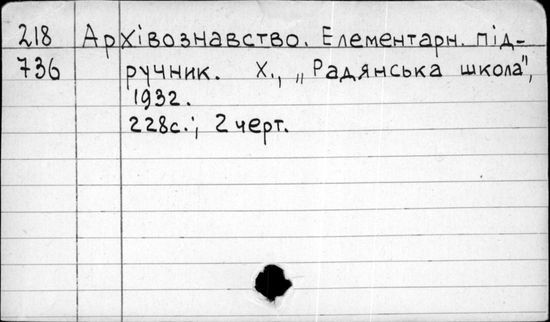 218 Архівознавство. Елементарн. під-
736 ручник. Х., „Радянська школа",
1932.
228с.; 2 черт.